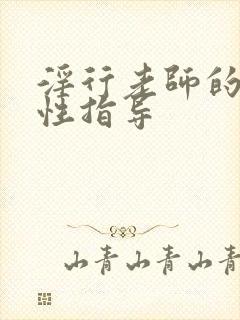 淫行老师的
性指导
山青山青山青